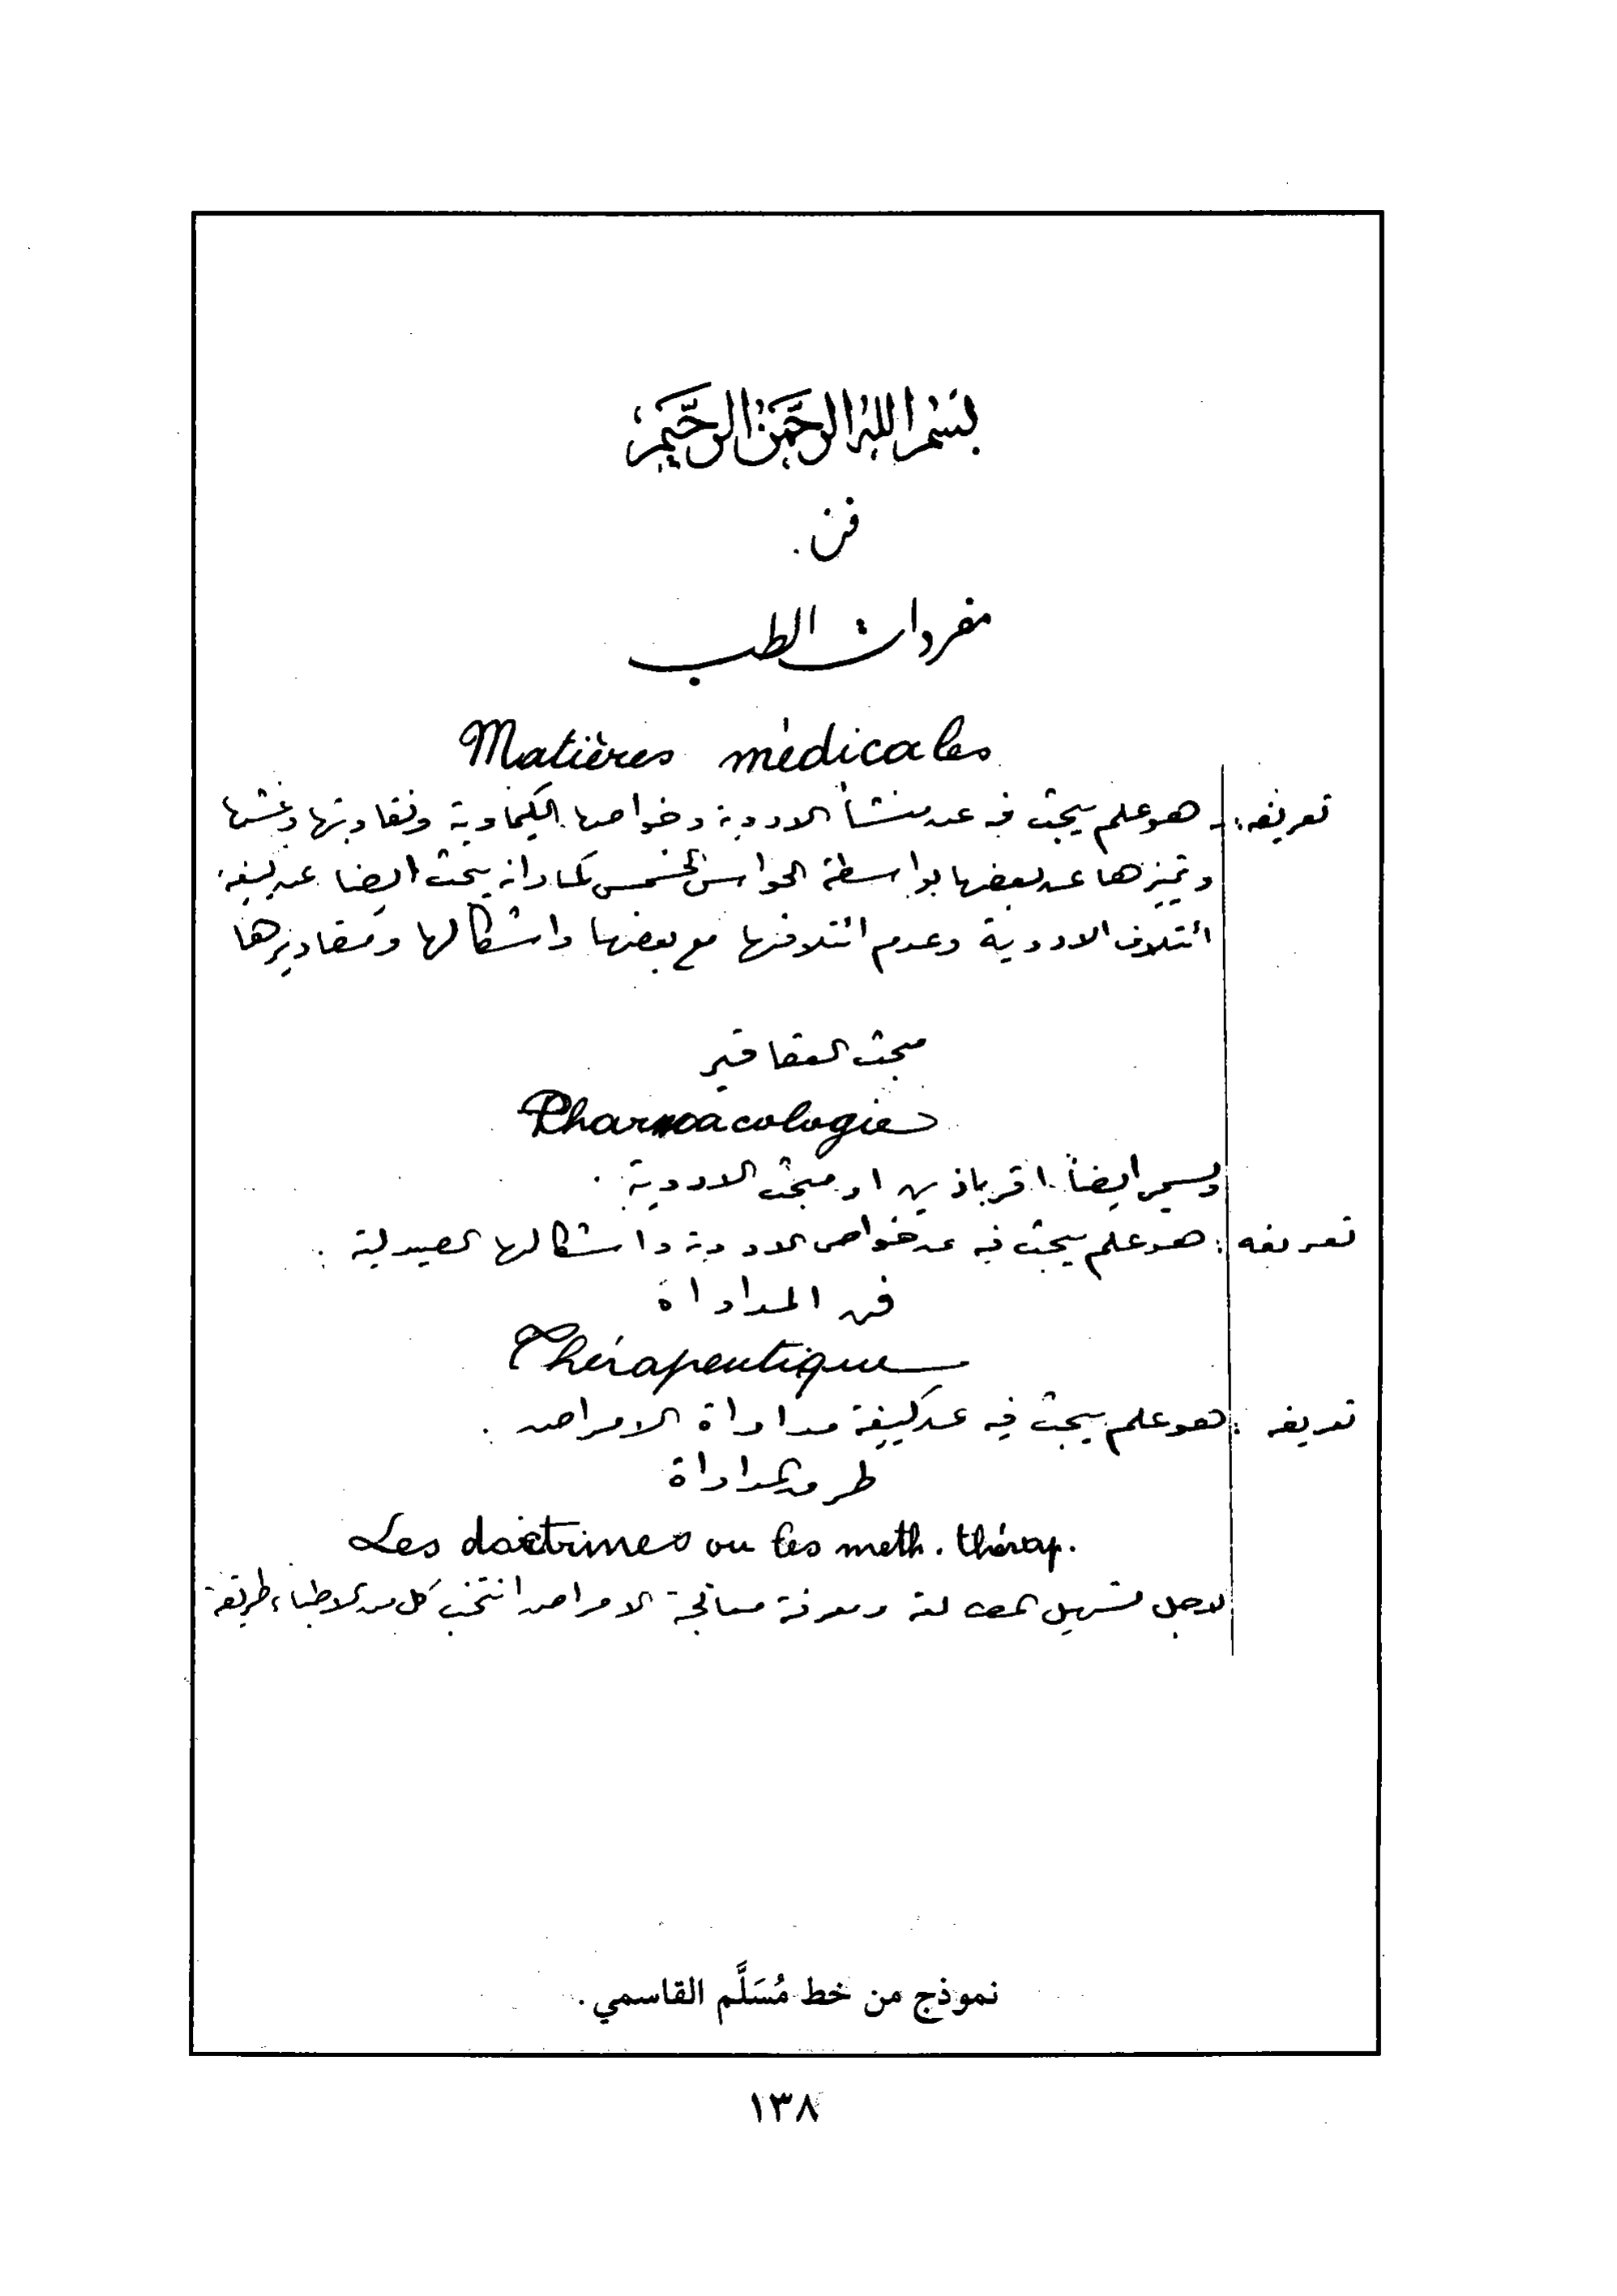 بِسْمِ اللهِ الرَّحْمَنِ الرَّحِيمِ
فن.
مفردات الطب
Matières médicales
تعريفه: هو علم يبحث فيه عن منشأ الادوية وخواصها الكيماوية ونقاوتها وغشها
وتميزها عن بعضها بواسطة الحواس الخمس كما وانه يبحث ايضا عن كيفية
ائتلاف الادوية وعدم ائتلافها مع بعضها واشكالها ومقاديرها
مبحث العقاقير
Pharmacologie
ويسمى ايضاً اقرباذين او مبحث الادوية.
تعريفه: هو علم يبحث فيه عن خواص الادوية واشكالها الصيدلية.
فن المداواة
Thérapeutique
تعريفه: هو علم يبحث فيه عن كيفية مداواة الامراض.
طرق المداواة
Les doctrines ou les meth. thérap.
لاجل تسهيل ومعرفة معالجة الامراض انتخب كل من الاطباء طريقة
نموذج من خط مُسَلَّم القاسمي.
١٣٨